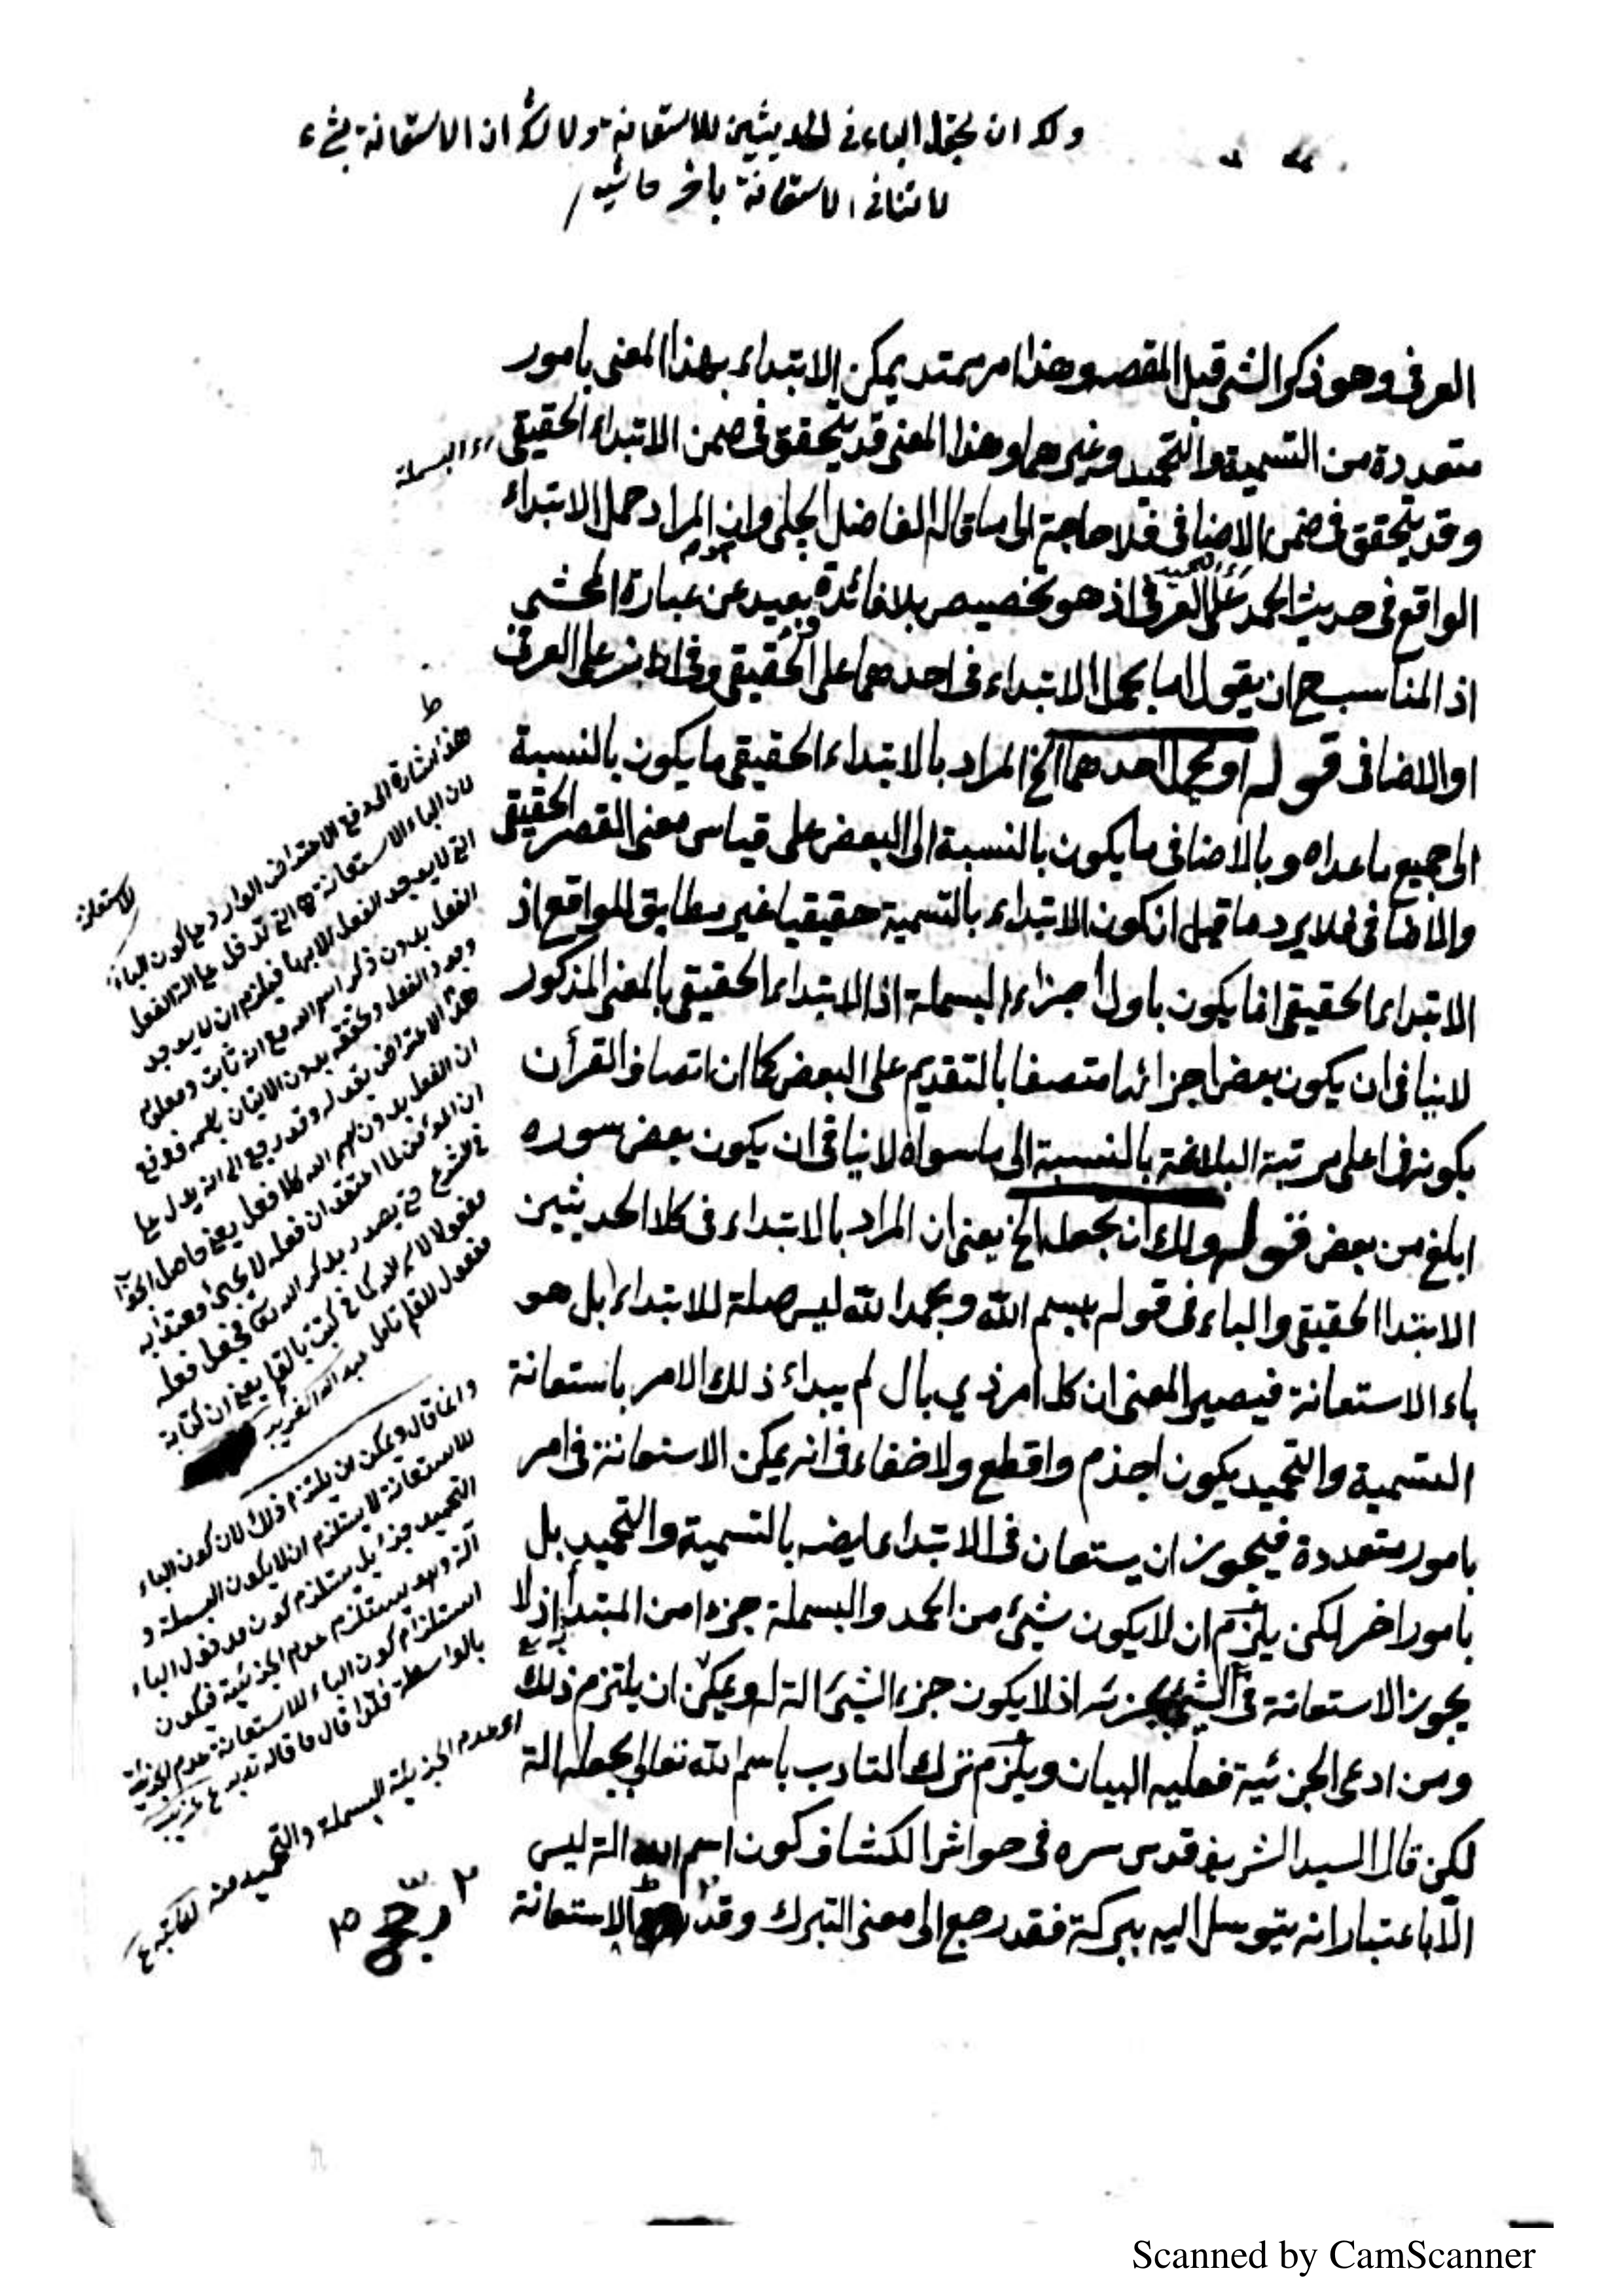 ولك ان تجعل الباء في الحديثين للاستعانة ولا شك ان الاستعانة بشيء
لا تنافي الاستعانة باخر حاشيه
العرفى وهو ذكر الشئ قبل المقصود وهذا امر ممتد يمكن الابتداء بهذا المعنى بامور
متعددة من التسمية والتحميد وغيرهما وهذا المعنى قد يتحقق فى ضمن الابتداء الحقيقى
اى البسملة
وقد يتحقق فى ضمن الاضافى فلا حاجة الى ما قاله الفاضل الجلى وان المراد حمل الابتداء
الواقع فى حديث الحمد على العرفى اذ هو تخصيص بلا فائدة بعيد عن عبارة المحشى
اذ المناسب ح ان يقول اما بحمل الابتداء فى احدهما على الحقيقى وفى الاخر على العرفى
او الاضافى قوله او يحمل احدهما الخ المراد بالابتداء الحقيقى ما يكون بالنسبة
الى جميع ما عداه وبالاضافى ما يكون بالنسبة الى البعض على قياس معنى القصر الحقيقى
والاضافى فلا يرد ما قيل ان كون الابتداء بالتسمية حقيقيا غير مطابق للواقع اذ
الابتداء الحقيقى انما يكون باول اجزاء البسملة اذ الابتداء الحقيقى بالمعنى المذكور
لا ينافى ان يكون بعض اجزائها متصفا بالتقديم على البعض كما ان اتصاف القرأن
بكونه فى اعلى مرتبة البلاغة بالنسبة الى ما سواه لا ينافى ان يكون بعض سوره
ابلغ من بعض قوله ولك ان تجعل الخ يعنى ان المراد بالابتداء فى كلا الحديثين
الابتدا الحقيقى والباء فى قوله ببسم الله وبحمد الله ليس صلة للابتداء بل هو
باء الاستعانة فيصير المعنى ان كل امر ذي بال لم يبداء ذلك الامر باستعانة
التسمية والتحميد يكون اجذم واقطع ولا خفاء فى انه يمكن الاستعانة فى امر
بامور متعددة فيجوز ان يستعان فى الابتداء ايضا بالتسمية والتحميد بل
بامور اخر لكن يلزم ان لا يكون شيئ من الحمد والبسملة جزء من المبتدأ اذ لا
يجوز الاستعانة فى الشيئ بجزئه اذ لا يكون جزء الشيئ الة له ويمكن ان يلتزم ذلك
ومن ادعى الجزئية فعليه البيان ويلزم ترك التادب باسم الله تعالى بجعله الة
لكن قال السيد الشريف قدس سره فى حواشى الكشاف كون اسم الله الة ليس
الا باعتبار انه يتوسل اليه ببركة فقد رجع الى معنى التبرك وقد الاستعانة
هذا اشارة الى دفع الاعتراض الوارد على كون الباء
للاستعانة
لان الباء الاستعانة هي التي تدخل على الة الفعل
التي لا يوجد الفعل الا بها فيلزم ان لا يوجد
الفعل بدون ذكر اسم الله مع انه ثابت ومعلوم
وجود الفعل وتحققه بدون الاتيان باسمه فدفع
هذا الاعتراض بقوله وقد رجع الى انه يدل على
ان الفعل بدون اسم الله كلا فعل يعنى حاصل الجواب
ان المؤمن لما اعتقد ان فعله لا يجئ معتدا به
في الشرع حتى يصدر بذكر الله تعالى فجعل فعله
مفعولا لاسم الله كما في كتبت بالقلم يعنى ان كتابة
مفعول للقلم تامل
وانما قال ويمكن ان يلتزم ذلك لان كون الباء
للاستعانة لا يستلزم ان لا يكون البسملة و
التحميد جزء بل يستلزم كون مدخول الباء
آلة وهو يستلزم عدم الجزئية فيكون
استلزام كون الباء للاستعانة عدم الجزئية
بالواسطة فلذا قال ما قاله تدبر
اى عدم الجزئية البسملة والتحميد منه لكاتبه
Scanned by CamScanner